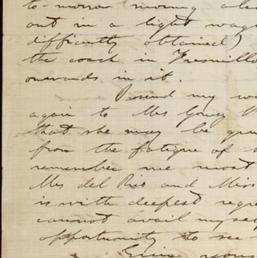 to-morrow morning
out in a light
difficultly obtained)
the coach in Fresnillo
onwards in it.
I send my
again to Mrs
that she may be
from the fatigue of
remember me most
Mrs del Rio and Miss
is with deepest
cannot avail my
opportunity to see